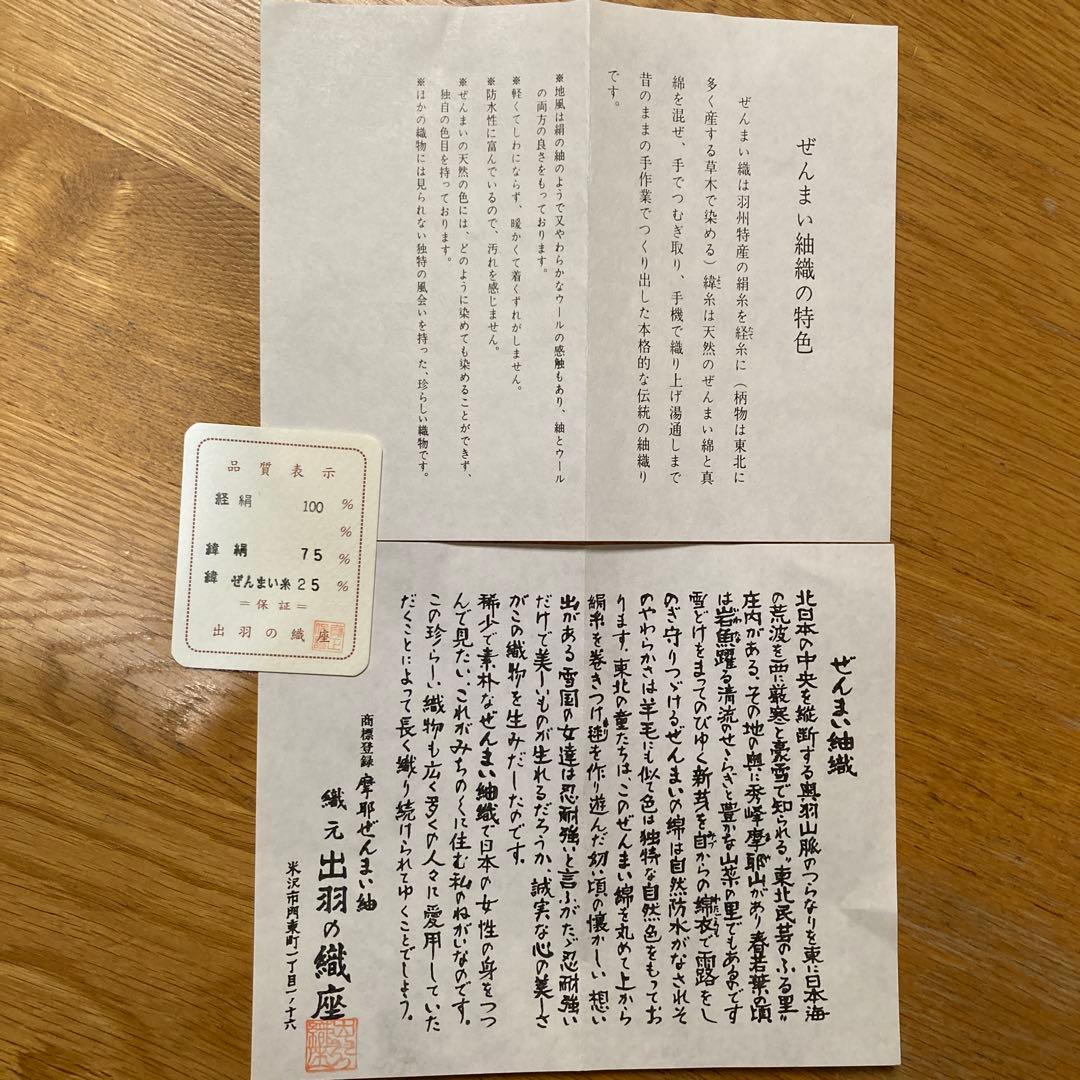 ぜんまい紬織の特色
ぜんまい織は羽州特産の絹糸を経糸に(柄物は東北に
たて
多く産する草木で染める)緯糸は天然のぜんまい綿と真
よこ
綿を混ぜ、手でつむぎ取り、手機で織り上げ湯通しまで
昔のままの手作業でつくり出した本格的な伝統の紬織り
です。
※地風は絹の紬のようで又やわらかなウールの感触もあり、紬とウール
の両方の良さをもっております。
※軽くてしわにならず、暖かくて着くずれがしません。
※防水性に富んでいるので、汚れを感じません。
※ぜんまいの天然の色には、どのように染めても染めることができず、
独自の色目を持っております。
※ほかの織物には見られない独特の風合いを持った、珍らしい織物です。
品質表示
経 絹 100 %
%
緯 絹 75 %
緯 ぜんまい糸 25 %
=保証=
出羽の織座
ぜんまい紬織
北日本の中央を縦断する奥羽山脈のつらなりを東に日本海
の荒波を西に厳寒と豪雪で知られる〝東北民芸のふる里〟
庄内がある、その地の奥に秀峰摩耶山があり春若葉の頃
は岩魚躍る清流のせゝらぎと豊かな山菜の里でもあるのです
いわな
雪どけをまってのびゆく新芽を自からの綿衣で雨露をし
のぎ守りつゞけるぜんまいの綿は自然防水がなされそ
のやわらかさは羊毛にも似て色は独特な自然色をもってお
ります。東北の童たちは、このぜんまい綿を丸めて上から
絹糸を巻きつけ毬を作り遊んだ幼い頃の懐かしい想い
出がある雪国の女達は忍耐強いと言ふがたゞ忍耐強い
だけで美しいものが生れるだろうか、誠実な心の美しさ
がこの織物を生みだしたのです。
稀少で素朴なぜんまい紬織で日本の女性の身をつつ
んで見たい、これがみちのくに住む私のねがいなのです。
この珍らしい織物も広く多くの人々に愛用していた
だくことによって長く織り続けられてゆくことでしょう。
商標登録 摩耶ぜんまい紬
織元 出羽の織座
米沢市門東町一丁目一ノ十六